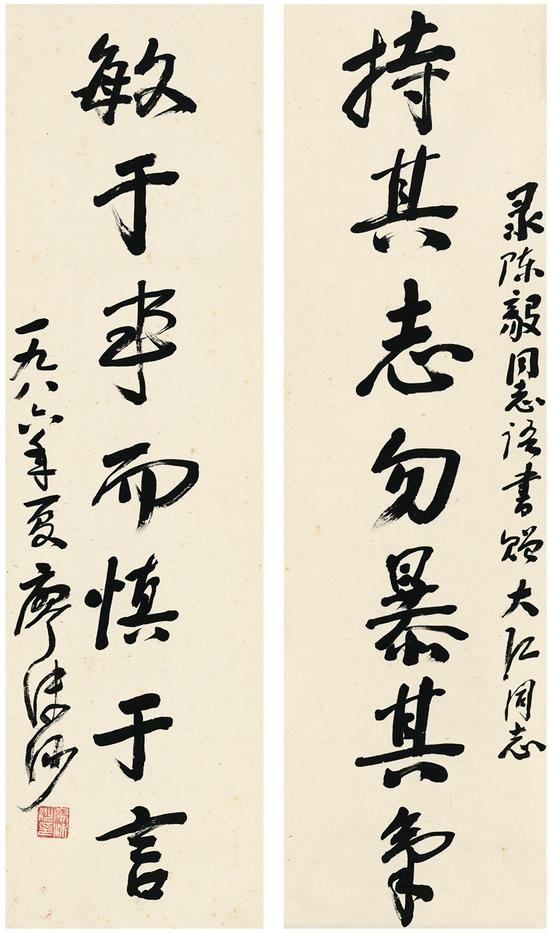 录陈毅同志语书赠大江同志
持其志勿暴其气
敏于事而慎于言
一九八六年夏 廖沫沙